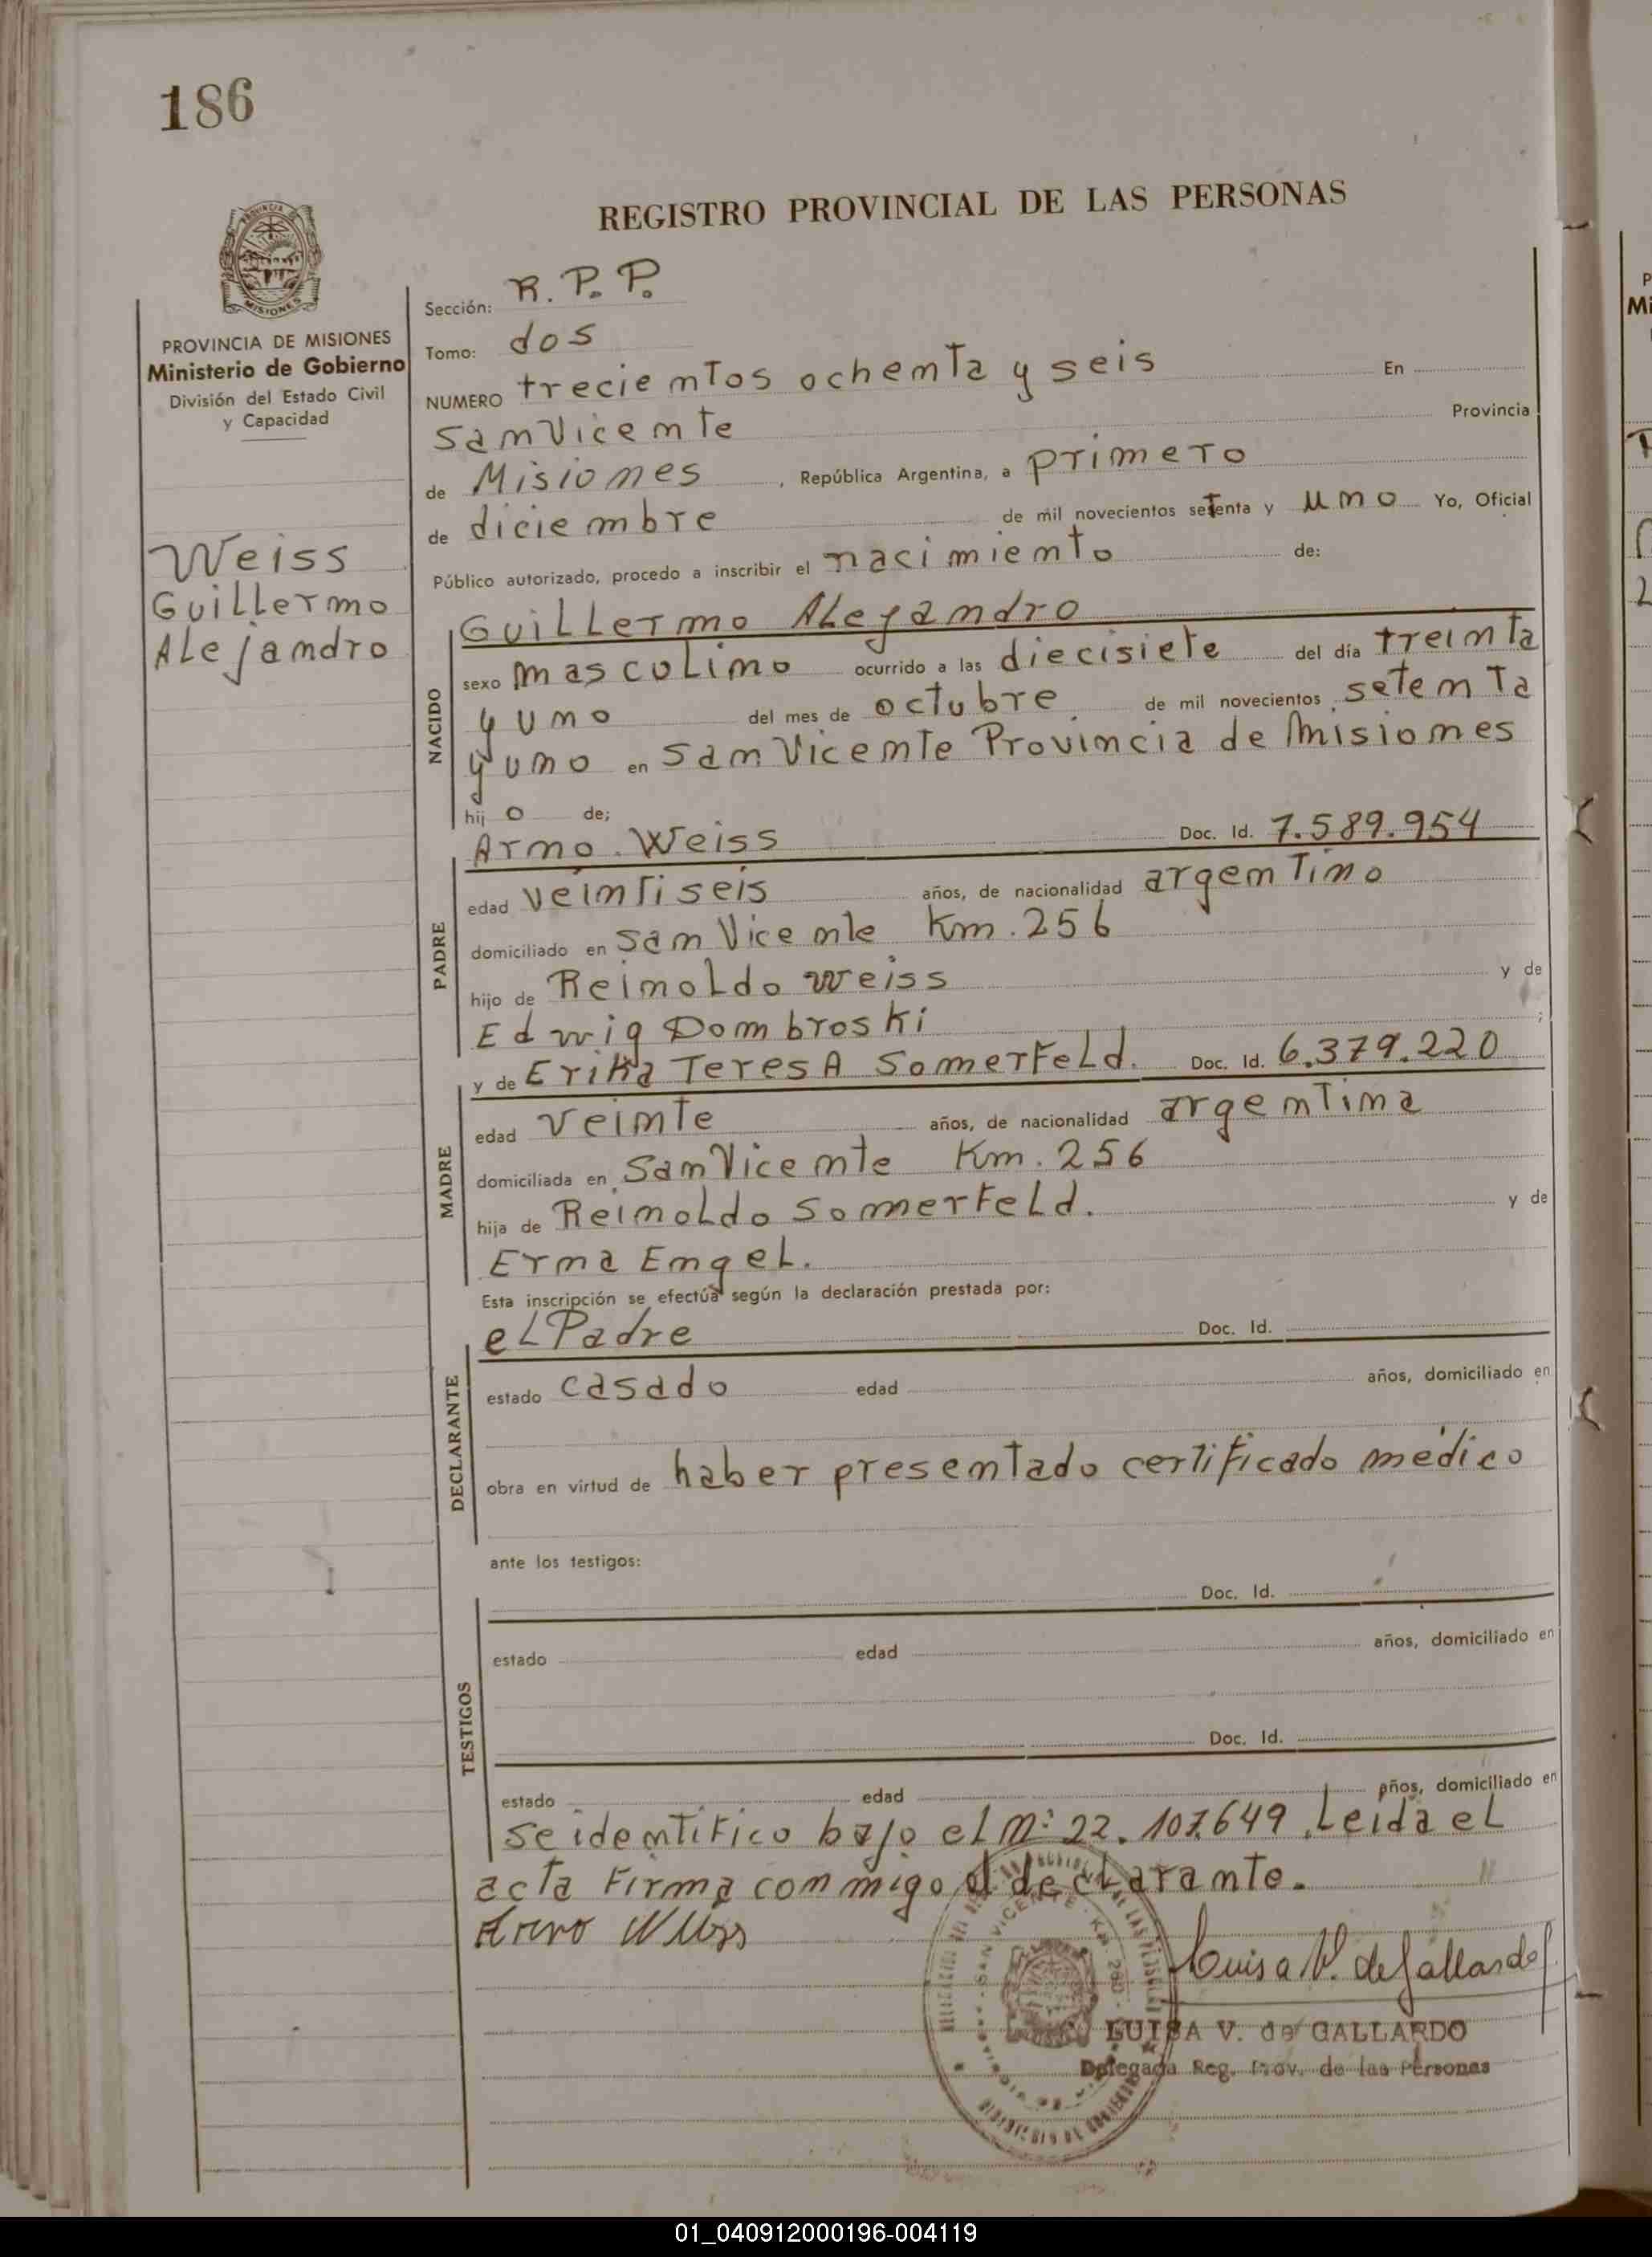 186
REGISTRO PROVINCIAL DE LAS PERSONAS
PROVINCIA DE MISIONES
Ministerio de Gobierno
División del Estado Civil
y Capacidad
Weiss
Guillermo
Alejandro
Sección: R.P.P.
Tomo: dos
NUMERO trecientos ochenta y seis En
San Vicente Provincia
de Misiones, República Argentina, a primero
de diciembre de mil novecientos setenta y uno Yo, Oficial
Público autorizado, procedo a inscribir el nacimiento de:
NACIDO
Guillermo Alejandro
sexo masculino ocurrido a las diecisiete del día treinta
y uno del mes de octubre de mil novecientos setenta
y uno en San Vicente Provincia de Misiones
hijo de;
PADRE
Arno Weiss Doc. Id. 7.589.954
edad veintiseis años, de nacionalidad argentino
domiciliado en San Vicente Km. 256
hijo de Reinoldo Weiss y de
Edwig Dombroski ;
MADRE
y de Erika Teresa Somerfeld. Doc. Id. 6.379.220
edad veinte años, de nacionalidad argentina
domiciliada en San Vicente Km. 256
hija de Reinoldo Somerfeld. y de
Erma Engel.
Esta inscripción se efectúa según la declaración prestada por:
DECLARANTE
el Padre Doc. Id.
estado casado edad años, domiciliado en
obra en virtud de haber presentado certificado médico
ante los testigos:
TESTIGOS
Doc. Id.
estado edad años, domiciliado en
Doc. Id.
estado edad años, domiciliado en
se identifico bajo el n° 22.107.649. Leida el
acta firma conmigo el declarante.
Arno Weiss
Luisa V. de Gallardo
LUISA V. de GALLARDO
Delegada Reg. Prov. de las Personas
01_040912000196-004119